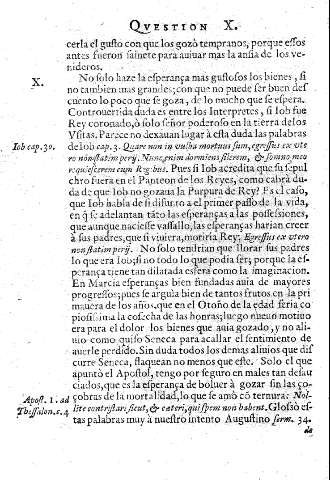 QVESTION X.
cerla el gusto con que los gozò tempranos, porque essos
antes fueron sainete para auiuar mas la ansia de los ve-
nideros.
X. No solo haze la esperança mas gustosos los bienes, si
no tambien mas grandes; con que no puede ser buen des
cuento lo poco que se goza, de lo mucho que se espera.
Controuertida duda es entre los Interpretes, si Iob fue
Rey coronado, ò solo señor poderoso en la tierra de los
Vsitas. Parece no dexauan lugar à esta duda las palabras
Iob cap. 30. de Iob cap. 3. Quare non in vulba mortuus sum, egressus ex vte
ro non statim perij. Nunc, enim dormiens silerem, & somno meo
requiescerem cum Regibus. Pues si Iob acredita que su sepul
chro fuera en el Panteon de los Reyes, como cabrà du-
da de que Iob no gozara la Purpura de Rey? Es el caso,
que Iob habla de si difunto à el primer passo de la vida,
en q̃ se adelantan tãto las esperanças a las possessiones,
que aunque naciesse vassallo, las esperanças harian creer
à sus padres, que si viuiera, moria Rey: Egressus ex vtero
non statim perij. No solo tendrian que llorar sus padres
lo que era Iob; si no todo lo que podia ser; porque la es-
perança tiene tan dilatada esfera como la imaginacion.
En Marcia esperanças bien fundadas auia de mayores
progressos; pues se arguìa bien de tantos frutos en la pri
mauera de los años, que en el Otoño de la edad seria co
piosissima la cosecha de las honras; luego nueuo motiuo
era para el dolor los bienes que auia gozado, y no ali-
uio como quiso Seneca para acallar el sentimiento de
auerle perdido. Sin duda todos los demas aliuios que dis
curre Seneca, flaquean no menos que este. Solo el que
apuntò el Apostol, tengo por seguro en males tan desau
ciados, que es la esperança de boluer à gozar sin las ço-
Apost. 1. ad çobras de la mortalidad, lo que se amò cõ ternura: Nol-
Thessalon. c. 4 lite contristari sicut, & cæteri, qui spem non habent. Glossò es-
tas palabras muy à nuestro intento Augustino serm. 34.
de